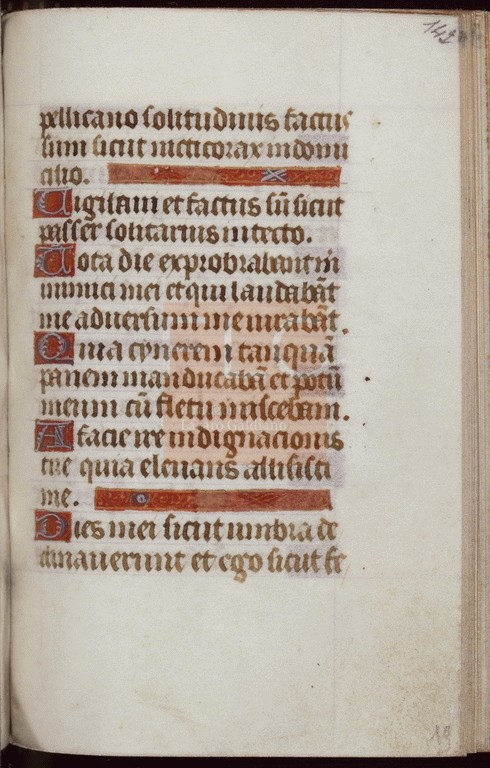 142
pellicano solitudinis factus
sum sicut nicticorax in domi
cilio.
Vigilavi et factus sū sicut
passer solitarius in tecto.
Tota die exprobrabant m̄
inimici mei et qui laudabāt
me adversum me iurabāt.
Quia cynerem tanquā
panem manducabā et potū
meum cū fletu miscebam.
A facie ire indignacionis
tue quia elevans allisisti
me.
Dies mei sicut umbra de
clinaverunt et ego sicut fe
19